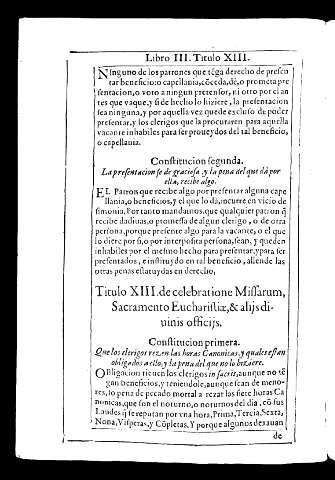 Libro III. Titulo XIII.
Ninguno de los patrones que tẽga derecho de presen
tar beneficio: o capellania, cõceda, dè, o prometa pre
sentacion, o voto a ningun pretensor, ni otro por el an
tes que vaque, y si de hecho lo hiziere, la presentacion
sea ninguna, y por aquella vez quede excluso de poder
presentar, y los clerigos que la procuraren para aquella
vacante inhabiles para ser proueydos del tal beneficio,
o capellania.
Constitucion segunda.
La presentacion se de graciosa, y la pena del que dà por
ella, recibe algo.
EL Patron que recibe algo por presentar alguna cape
llania, o beneficios, y el que lo dà, incurre en vicio de
simonia. Por tanto mandamos, que qualquier patron q̃
recibe daditias, o promessa de algun clerigo, o de otra
persona, porque presente algo para la vacante, o el que
lo diere por si, o por interposita persona, sean, y queden
inhabiles por el mesmo hecho para presentar, y para ser
presentados, e instituydo en tal beneficio, allende las
otras penas estatuydas en derecho,
Titulo XIII. de celebratione Missarum,
Sacramento Eucharistiæ, & alijs di-
uinis officijs.
Constitucion primera.
Que los clerigos rezen las horas Canonicas, y quales estan
obligados a ello, y la pena del que no lo hiziere.
Obligacion tienen los clerigos in sacris, aunque no tẽ
gan beneficios, y teniendole, aunque sean de meno-
res, so pena de pecado mortal a rezar las siete horas Ca
nonicas, que son el noturno, o noturnos del dia, cõ sus
Laudes q̃ se reputan por vna hora, Prima, Tercia, Sexta,
Nona, Visperas, y Cõpletas. Y porque algunos dexauan
de